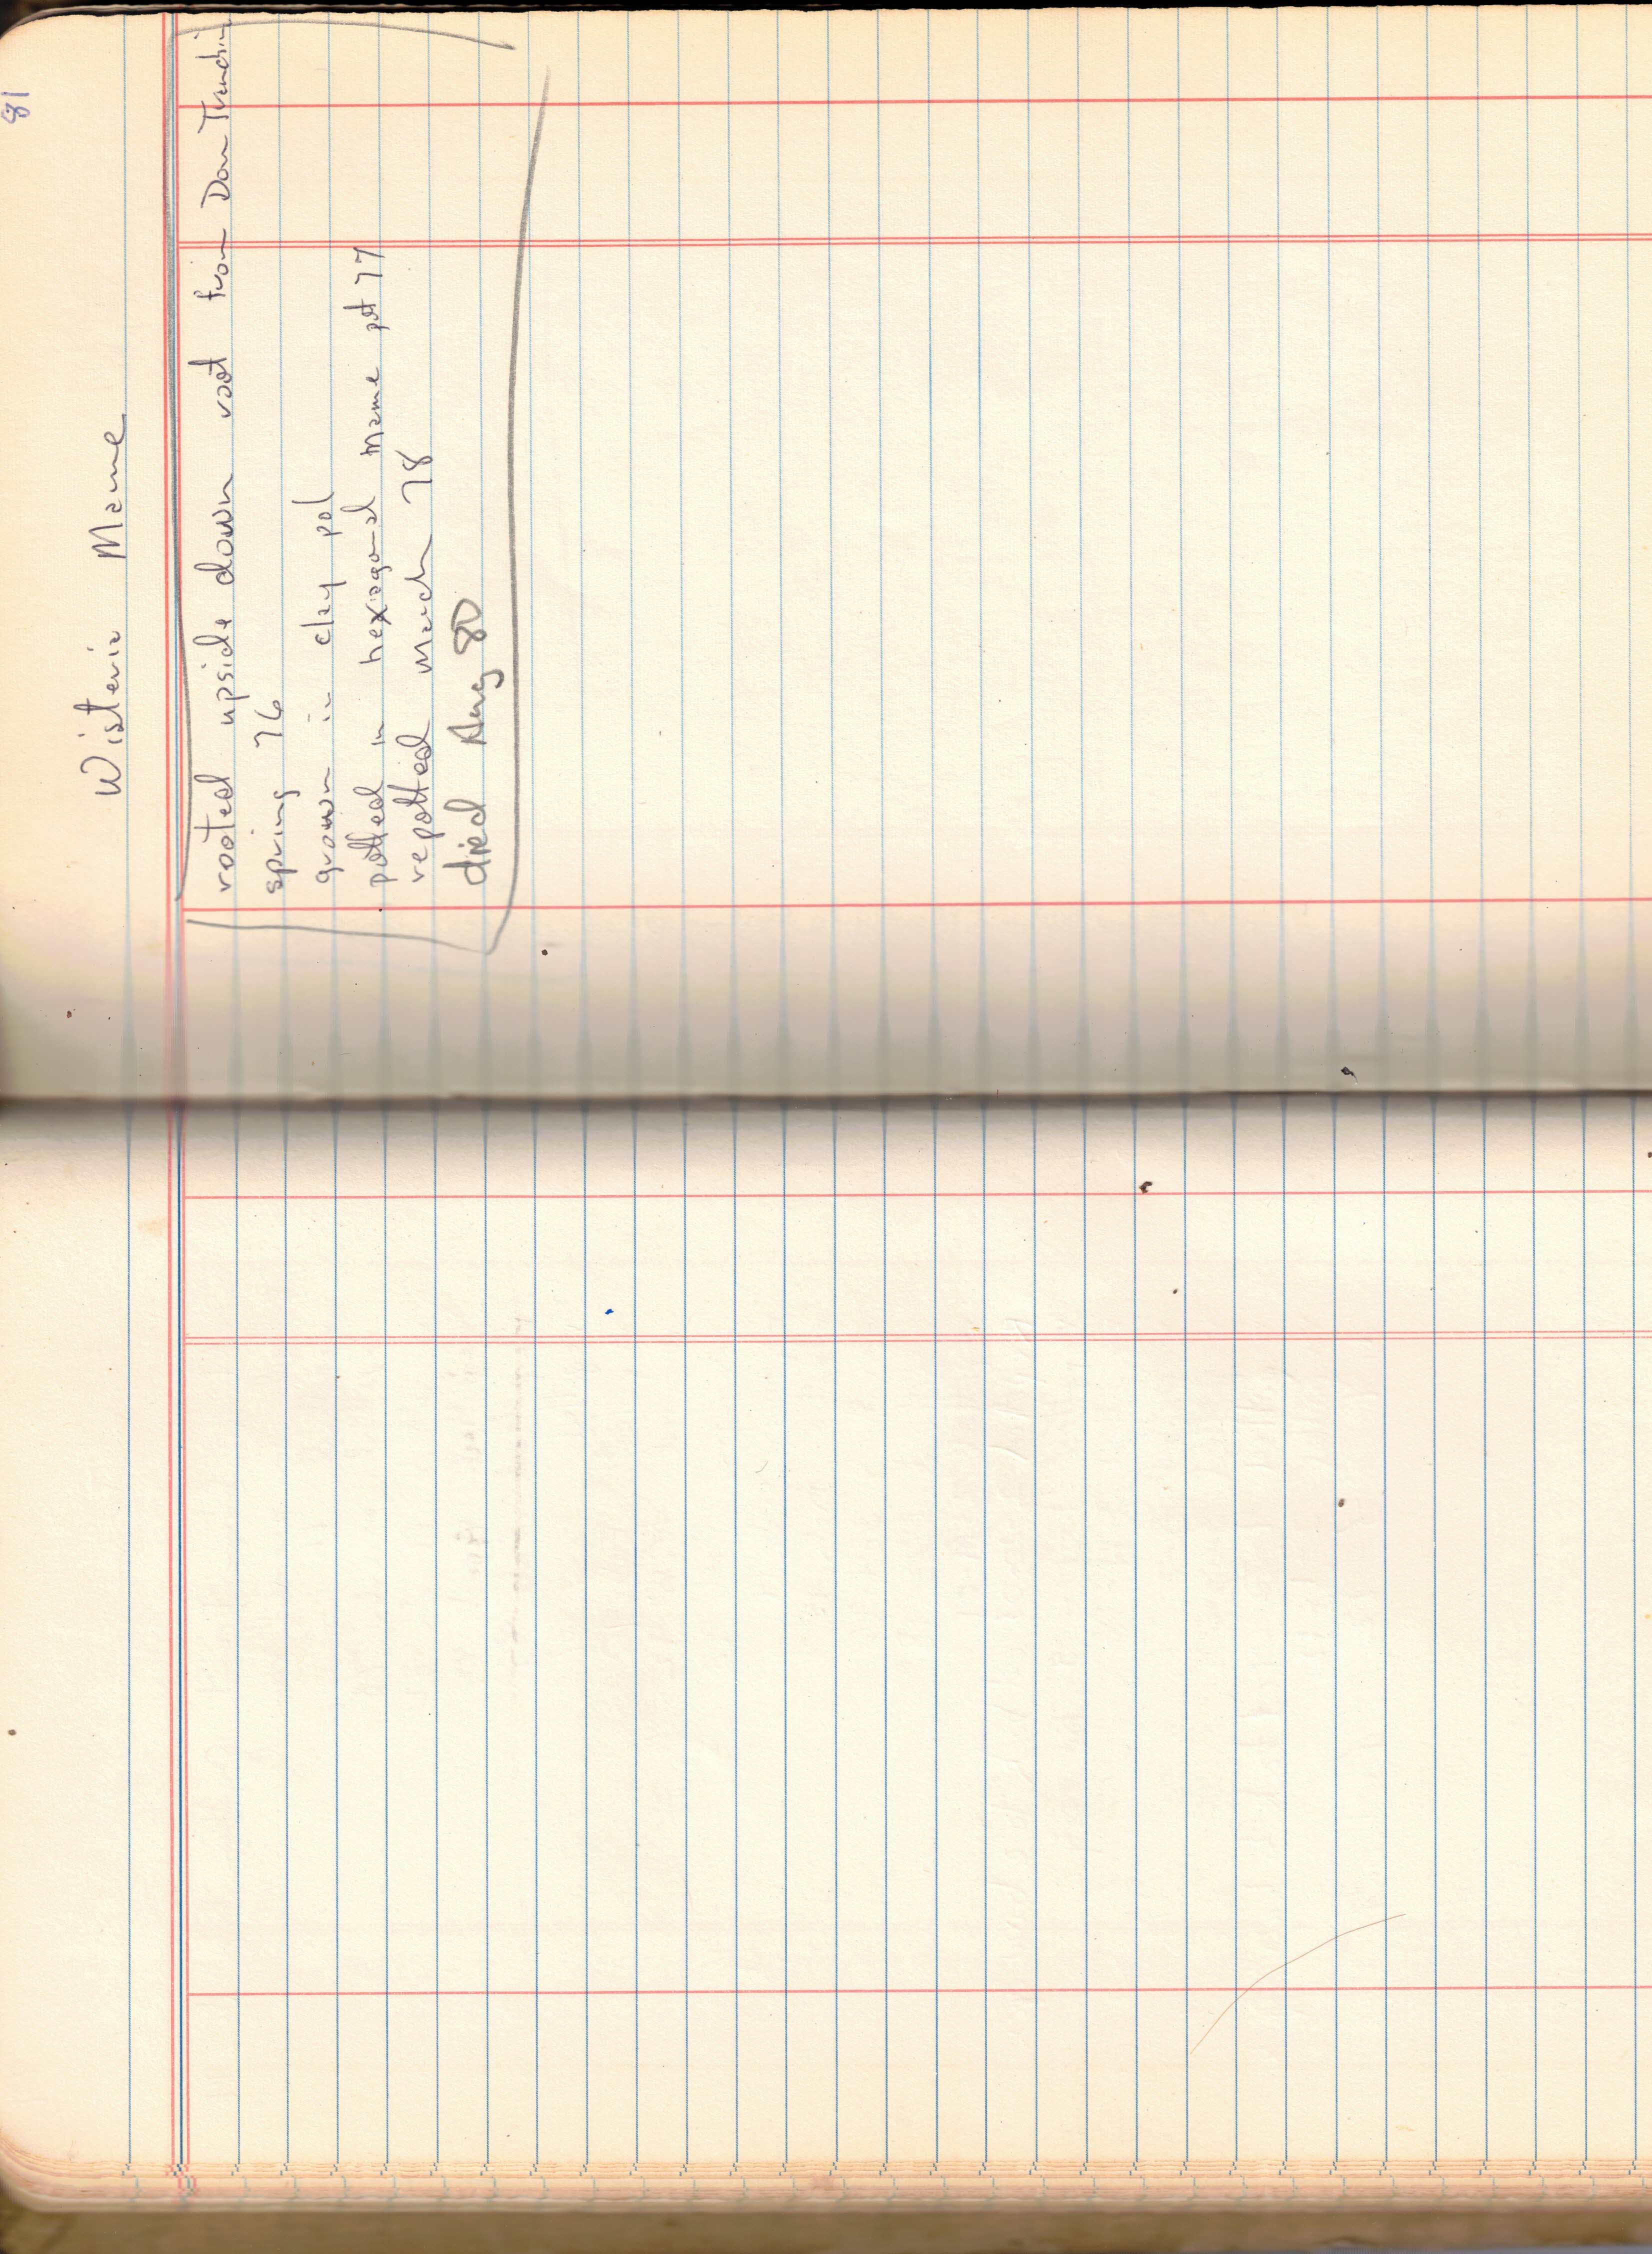 81
Wisteria Mame
rooted upside down root from Don
spring 76
grown in clay pot
potted in hexagonal mame pot 77
repotted march 78
died Aug 80